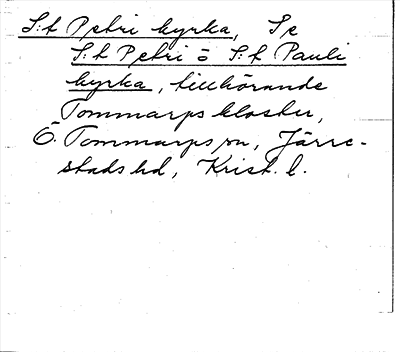 S:t Petri kyrka, Se
S:t Petri o S:t Pauli
kyrka, tillhörande
Tommarps kloster,
Ö. Tommarps sn, Järre-
stads hd, Krist. l.